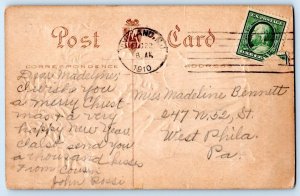 Post Card
CORRESPONDENCE
1910
Dear Madeline,
wish you
a merry Christ
mas & a very
happy new year
send you
a thousand kisses
From Cousin
John Rossi
Miss Madeline Bennett
247 N. 52, St.
West Phila.
Pa.